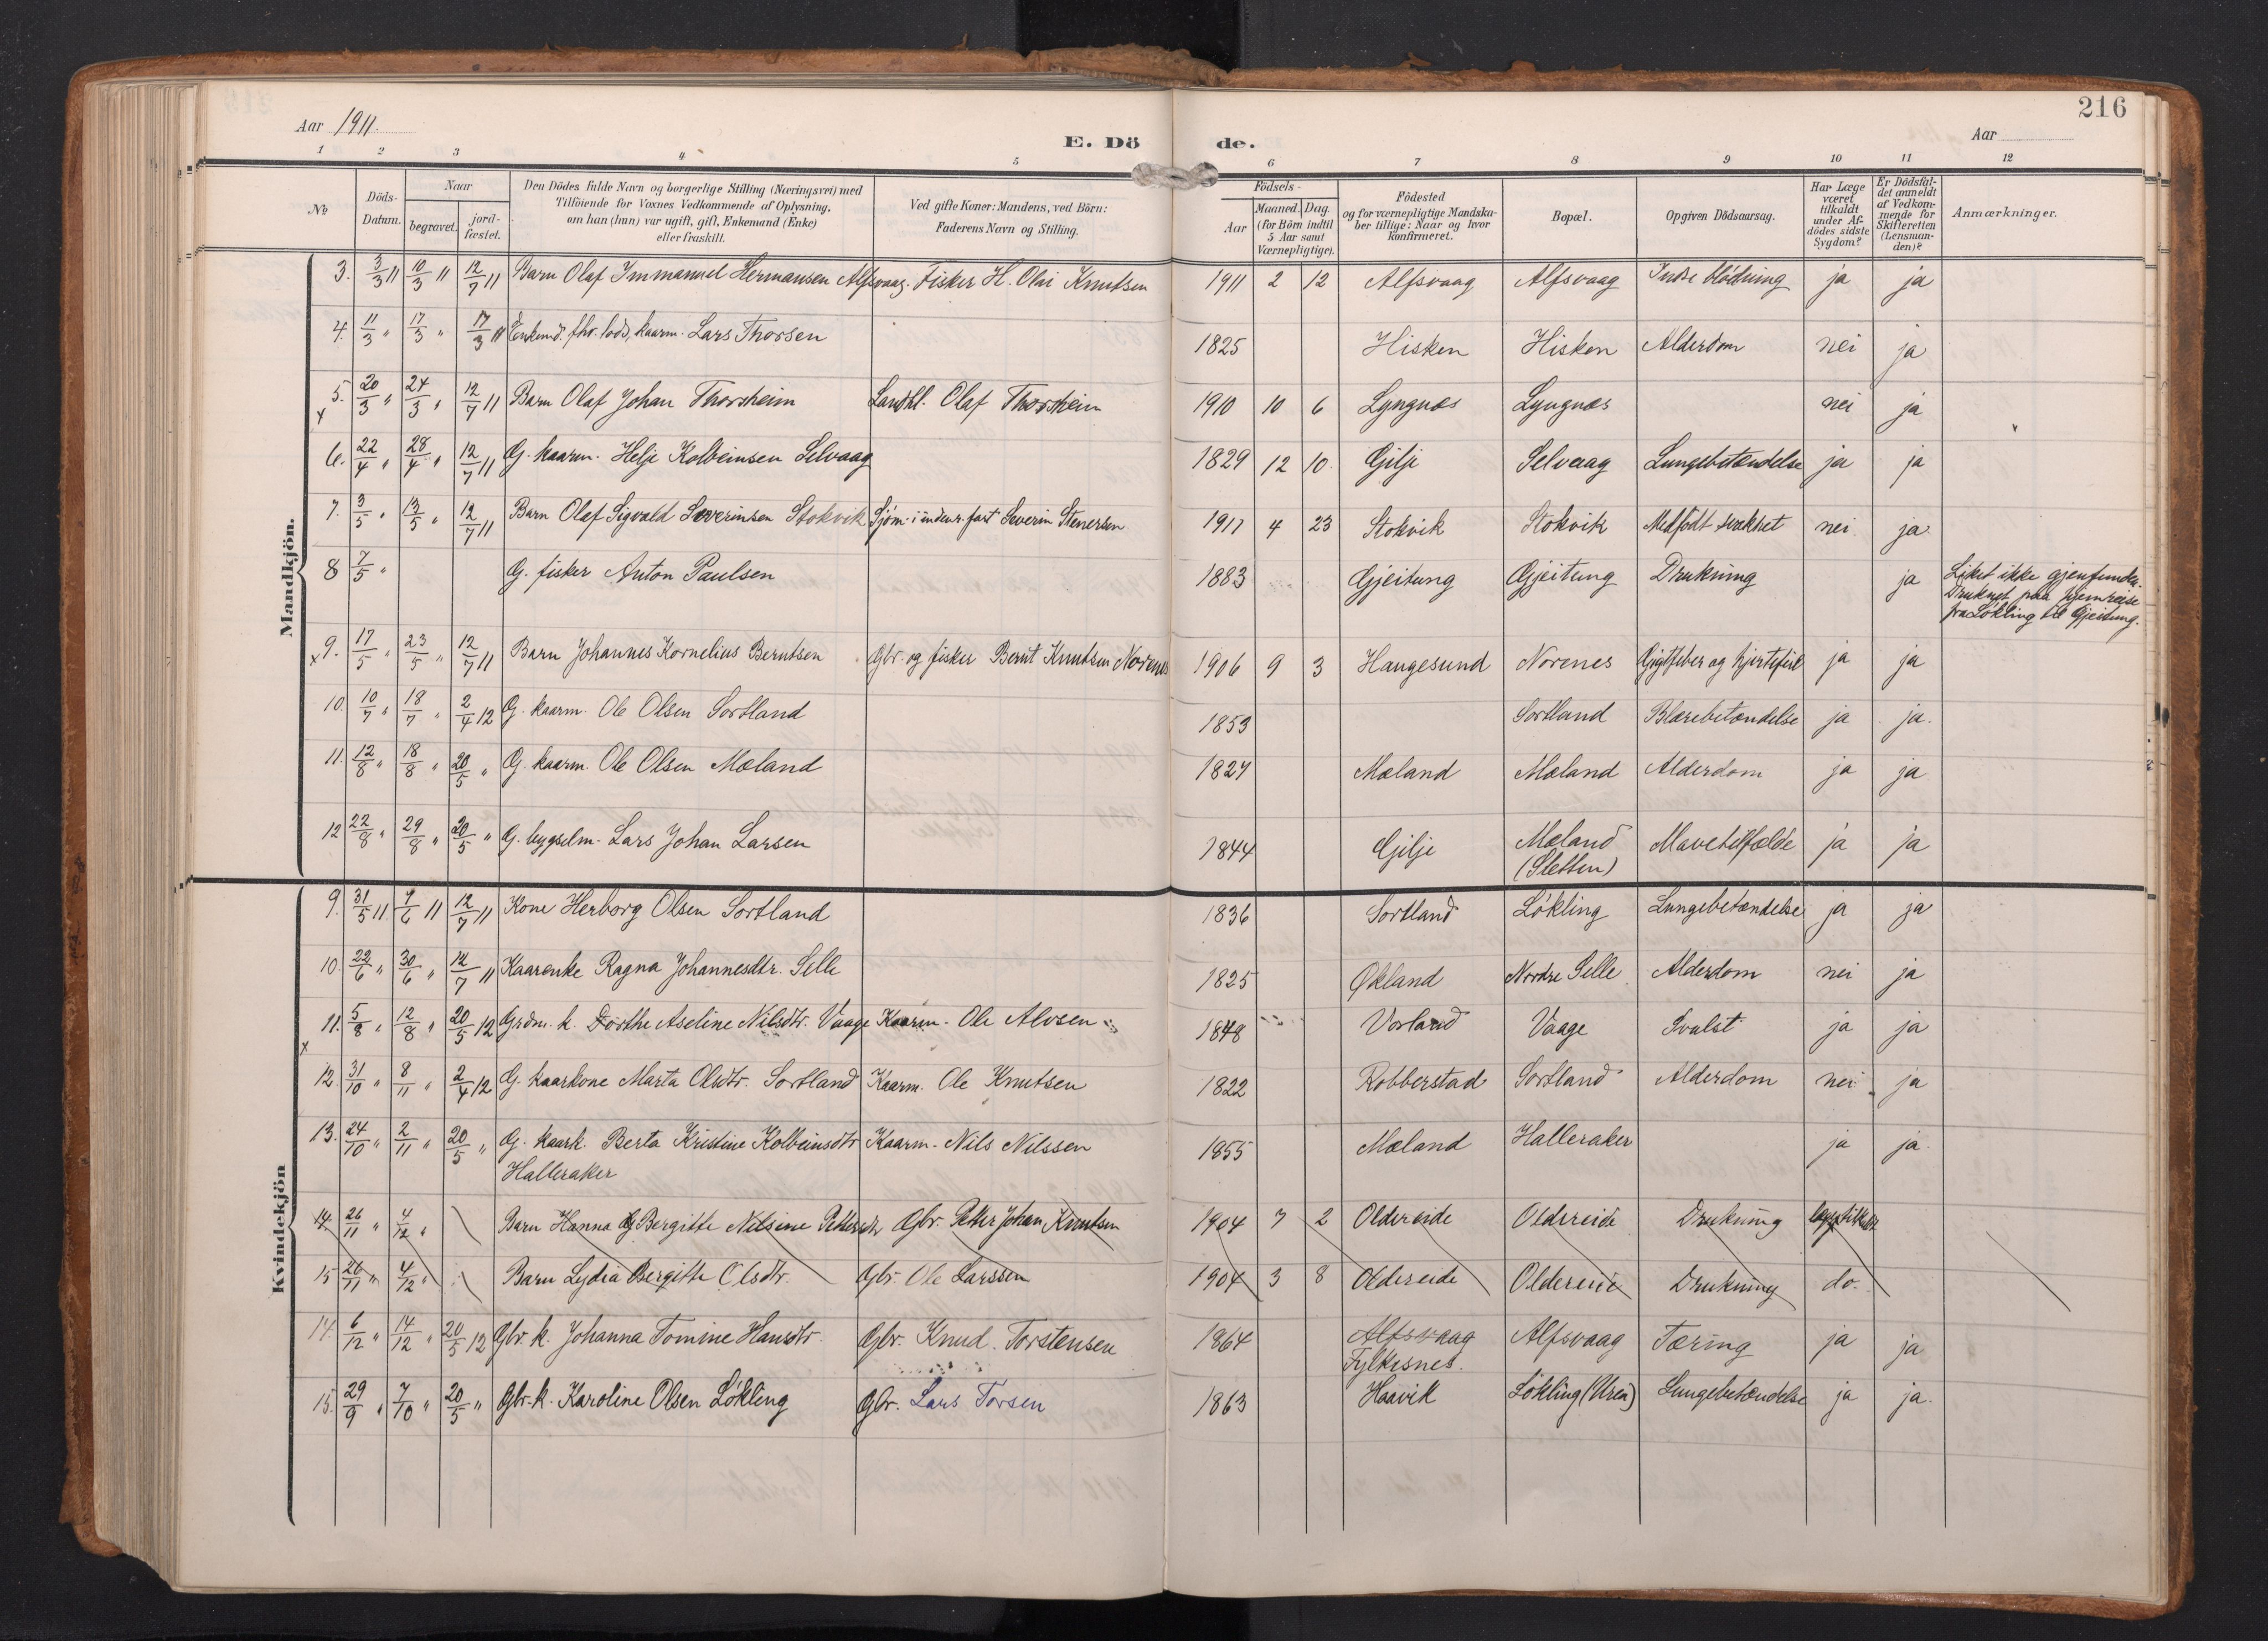 216
Aar 1911.
E. Dö de.
Aar
1 2 3 4 5 6 7 8 9 10 11 12
No
Döds-Datum.
Naar
begravet. jordfæstet.
Den Dödes fulde Navn og borgerlige Stilling (Næringsvei) med
Tilföiende for Voxnes Vedkommende af Oplysning,
om han (hun) var ugift, gift, Enkemand (Enke)
eller fraskilt.
Ved gifte Koner: Mandens, ved Börn:
Faderens Navn og Stilling.
Födsels-
Aar Maaned. Dag.
(for Börn indtil
5 Aar samt
Værnepligtige).
Födested
og for værnepligtige Mandskaber tillige: Naar og hvor
konfirmeret.
Bopæl.
Opgiven Dödsaarsag.
Har Læge
været
tilkaldt
under Afdödes sidste
Sygdom?
Er Dödsfaldet anmeldt
af Vedkommende for
Skifteretten
(Lensmanden)?
Anmærkninger.
Mandkjön.
3. 3/3 11 10/3 11 12/7 11 Barn Olaf Immanuel Hermansen Alfsvaag. Fisker H. Olai Knutsen 1911 2 12 Alfsvaag Alfsvaag Indre blödning ja ja
4. 11/3 " 17/3 " 17/3 11 Enkemd. fhv. lods, kaarm. Lars Thorsen 1825 Hisken Hisken Alderdom nei ja
x 5. 20/3 " 24/3 " 12/7 11 Barn Olaf Johan Thorsheim Landhl. Olaf Thorsheim 1910 10 6 Lyngnæs Lyngnæs nei ja
6. 22/4 " 28/4 " 12/7 11 G. kaarm. Helje Kolbeinsen Selvaag 1829 12 10 Gilje Selvaag Lungebetændelse ja ja
7. 3/5 " 13/5 " 12/7 11 Barn Olaf Sigvald Severinsen Stokvik Sjöm. i indenr. fart Severin Stenersen 1911 4 23 Stokvik Stokvik Medfödt svakhet nei ja
8 7/5 " G. fisker Anton Paulsen 1883 Gjeitung Gjeitung Drukning ja Liket ikke gjenfunden.
Druknet paa hjemreise
fra Løkling til Gjeitung.
x 9. 17/5 " 23/5 " 12/7 11 Barn Johannes Kornelius Berntsen Gbr. og fisker Bernt Knutsen Norenes 1906 9 3 Haugesund Norenes Gigtfeber og hjertefeil ja ja
10. 10/7 " 18/7 " 2/4 12 G. kaarm. Ole Olsen Sortland 1853 Sortland Blærebetændelse ja ja.
11. 12/8 " 18/8 " 20/5 " G. kaarm. Ole Olsen Mæland 1827 Mæland Mæland Alderdom ja ja
12 22/8 " 29/8 " 20/5 " G. bygselm. Lars Johan Larsen 1844 Gilje Mæland
(Sletten) Mavetilfælde ja ja
Kvindekjön
9. 31/5 11 7/6 11 12/7 11 Kone Herborg Olsen Sortland 1836 Sortland Løkling Lungebetændelse ja ja
10. 22/6 " 30/6 " 12/7 11 Kaarenke Ragna Johannesdtr. Selle 1825 Økland Nordre Selle Alderdom nei ja
x 11. 5/8 " 12/8 " 20/5 12 Grdm. k. Dorthe Aseline Nilsdtr. Vaage Kaarm. Ole Alvsen 1848 Vorland Vaage Svulst ja ja
12. 31/10 " 8/11 " 2/4 12 G. kaarkone Marta Olsdtr. Sortland Kaarm. Ole Knutsen 1822 Robberstad Sortland Alderdom nei ja
13. 24/10 " 2/11 " 20/5 " G. kaark. Berta Kristine Kolbeinsdtr Kaarm. Nils Nilssen 1855 Mæland Halleraker ja ja
Halleraker
14 26/11 " 4/12 " Barn Hanna Bergitte Nilsine Pettersdtr Gbr. Petter Johan Knutsen 1904 7 2 Oldereide Oldereide Drukning
15 26/11 " 4/12 " Barn Lydia Bergitte Olsdtr. Gbr. Ole Larssen 1904 3 8 Oldereide Oldereide Drukning do.
14. 6/12 " 14/12 " 20/5 12 Gbr. k. Johanna Tomine Hansdtr. Gbr. Knud Torstensen 1864 Alfsvaag
Fylkesnes. Alfsvaag Tæring ja ja
15. 29/9 " 7/10 " 20/5 " Gbr. k. Karoline Olsen Løkling Gbr. Lars Torsen 1863 Haavik Løkling (Urea) Lungebetændelse ja ja.